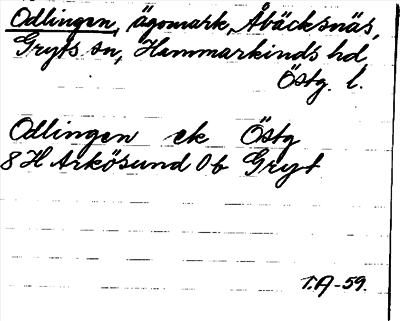 Odlingen, ägomark, Åbäcksnäs,
Gryts sn, Hammarkinds hd,
Östg. l.
Odlingen ek Östg
8H Arkösund 0b Gryt
T.A-59.